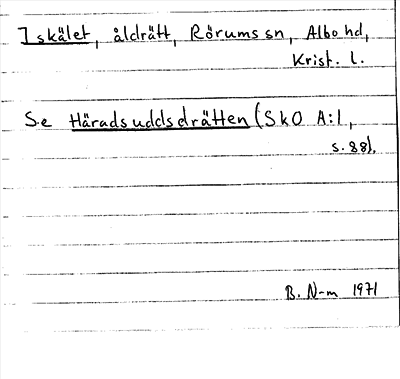 Iskälet, åldrätt, Rörums sn, Albo hd,
Krist. l.
Se Häradsuddsdrätten (SkO A:1,
s. 88).
B. N-m 1971